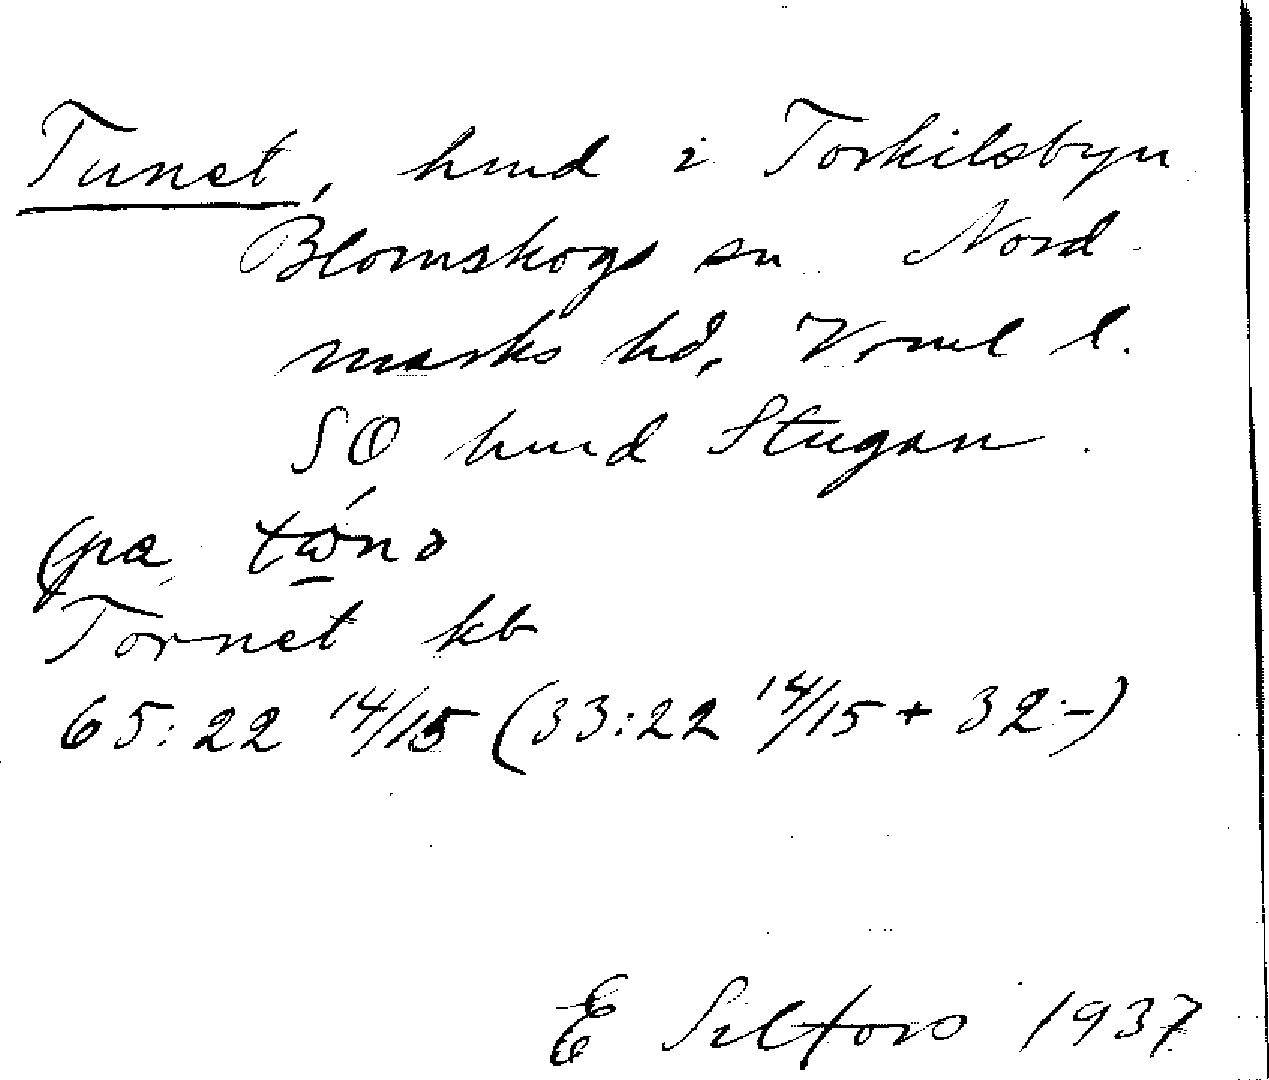 Tunet, hmd i Torkilsbyn
Blomskogs sn Nord-
marks hd, Vrml l.
SO hmd Stugan.
(på
Tornet kb
65:22 14/15 (33:22 14/15 + 32:-)
E Salfors 1937